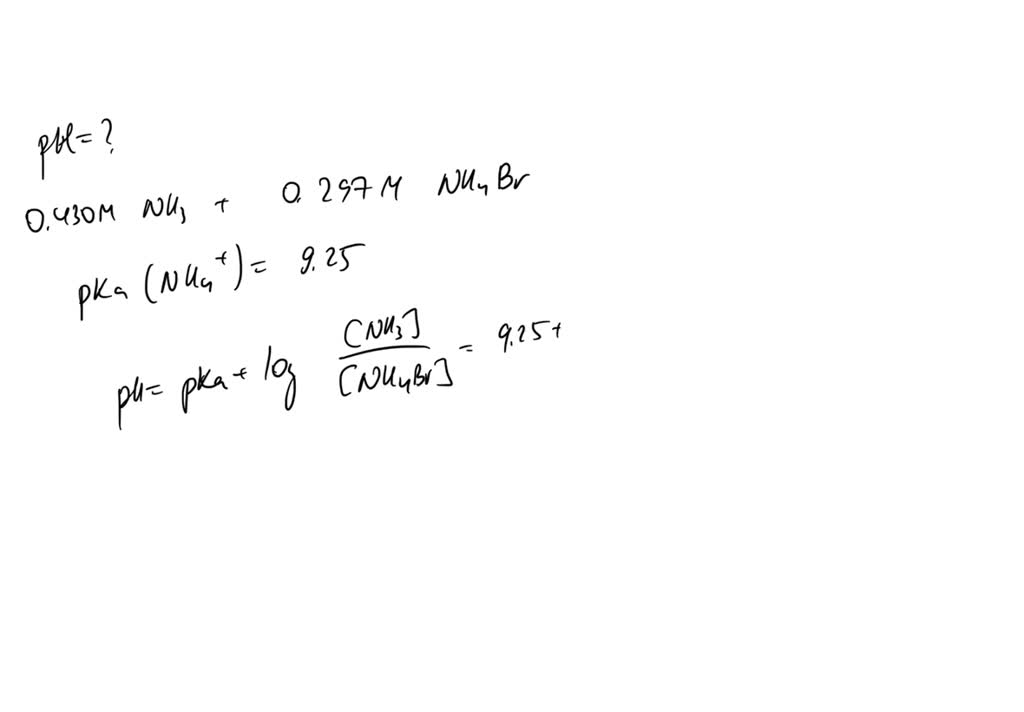 pH=?
0.430M NH3 + 0.297M NH4Br
pKa (NH4+)= 9.25
pH= pKa + log [NH3]/[NH4Br] = 9.25+